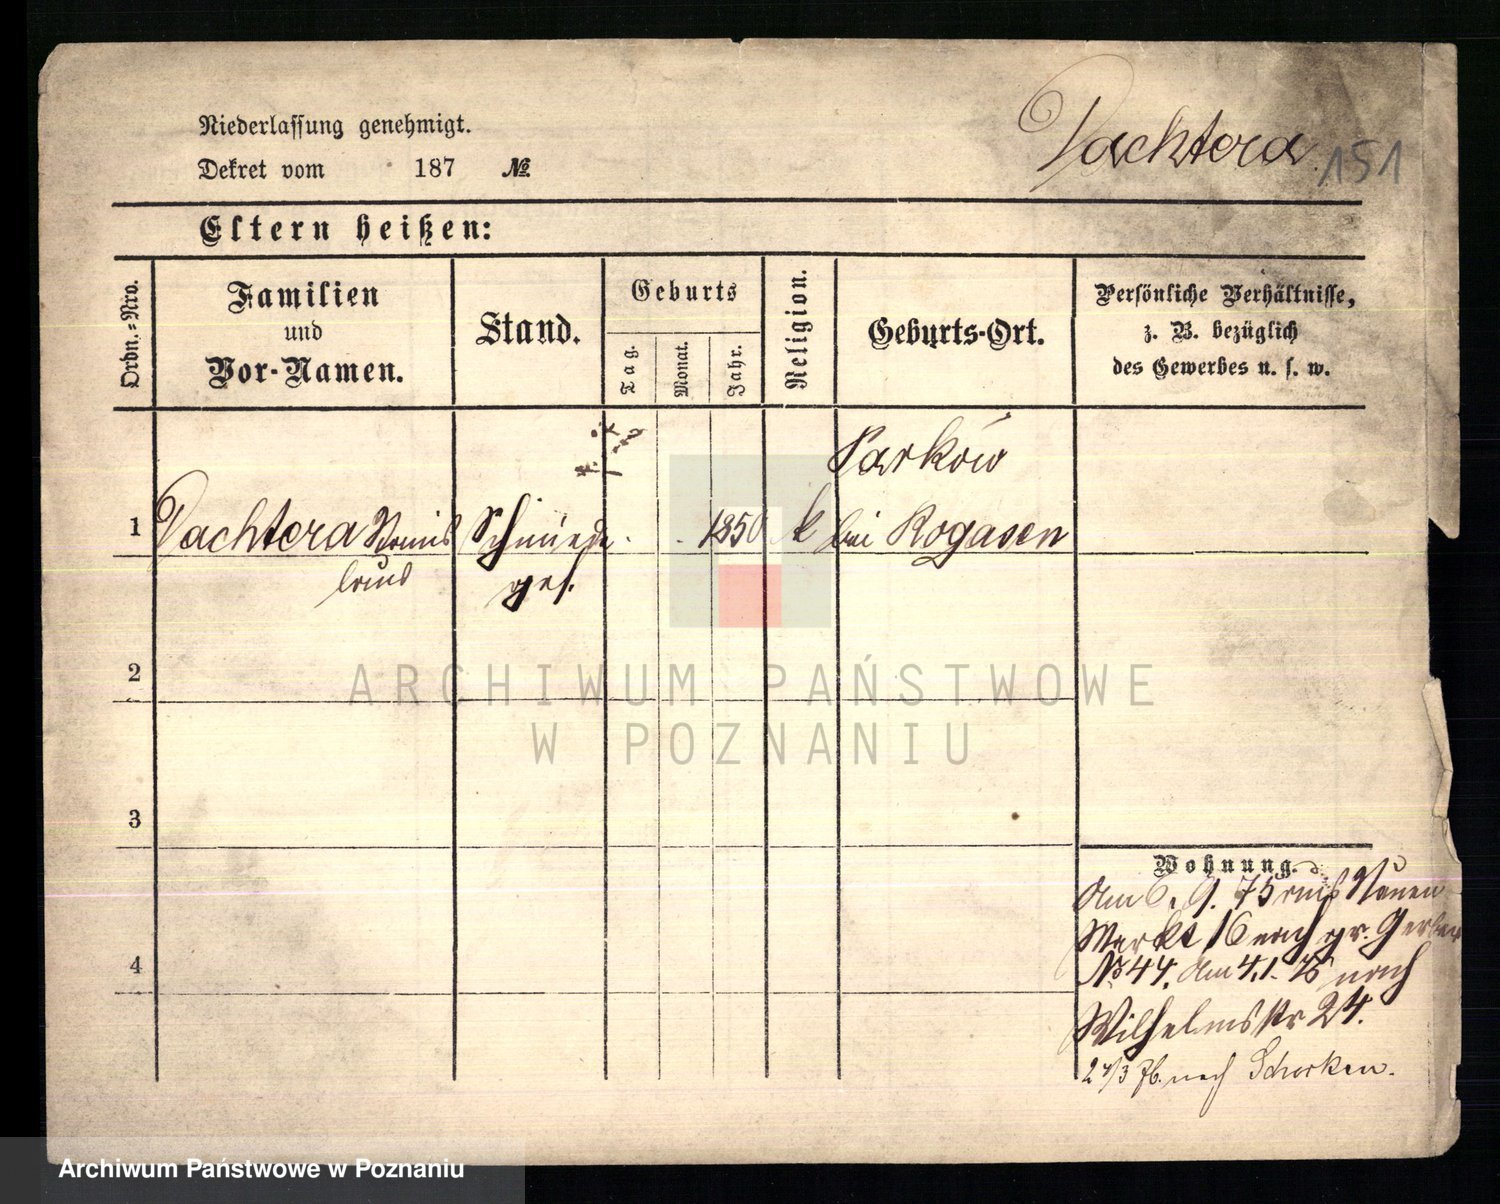 Niederlassung genehmigt.
Dekret vom 187 №
Vachtera 151
Eltern heißen:
Ordn.-Nro.
Familien
und
Vor-Namen.
Stand.
Geburts
Tag.
Monat.
Jahr.
Religion.
Geburts-Ort.
Persönliche Verhältnisse,
z. B. bezüglich
des Gewerbes u. s. w.
Parkowo
1 Vachtera Schmiede 1850 k bei Rogasen
laus ges.
2
ARCHIWUM PAŃSTWOWE
W POZNANIU
3
Wohnung.
Am 6. 9. 75 aus Neuen
Markt 16 nach gr. Gerber
№ 44. Am 4. 1. 76 nach
Wilhelmsstr 24.
24/3 76. nach Schocken.
4
Archiwum Państwowe w Poznaniu